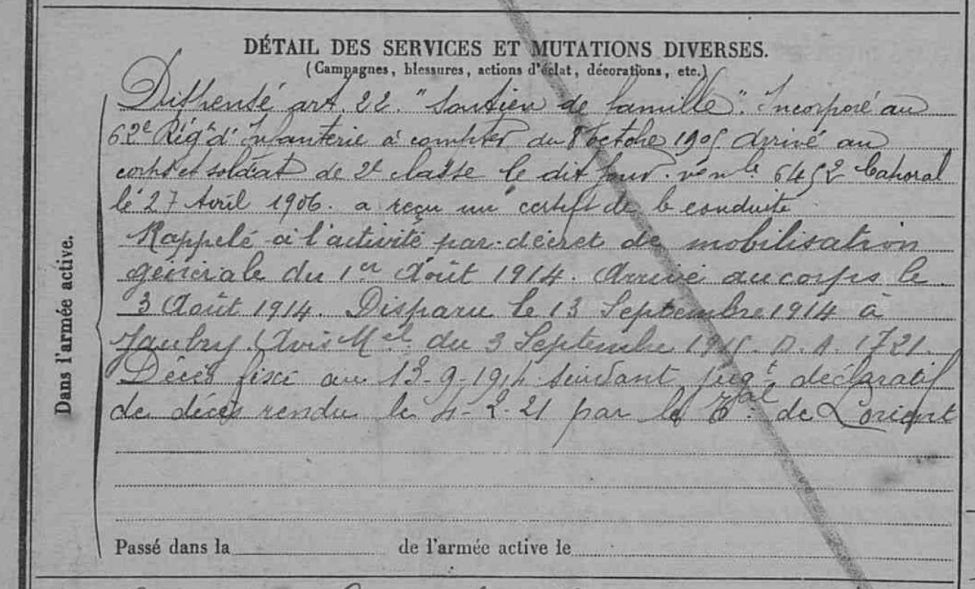 DÉTAIL DES SERVICES ET MUTATIONS DIVERSES.
(Campagnes, blessures, actions d'éclat, décorations, etc.)
Dispensé art. 22. "Soutien de famille". Incorporé au
62e Régt d'Infanterie à compter du 8 octobre 1905 Arrivé au
corps et soldat de 2e classe le dit jour. n° mle 6452 Caporal
le 27 Avril 1906. a reçu un certif de b conduite
Rappelé à l'activité par décret de mobilisation
générale du 1er Août 1914. Arrivé au corps le
3 Août 1914. Disparu le 13 Septembre 1914 à
Jaubry (Avis Mel du 3 Septembre 1915. D.A. 1721.
Décès fixé au 13-9-1914 suivant jugt déclaratif
de décès rendu le 4-2-21 par le Tal de Lorient
Dans l'armée active.
Passé dans la de l'armée active le